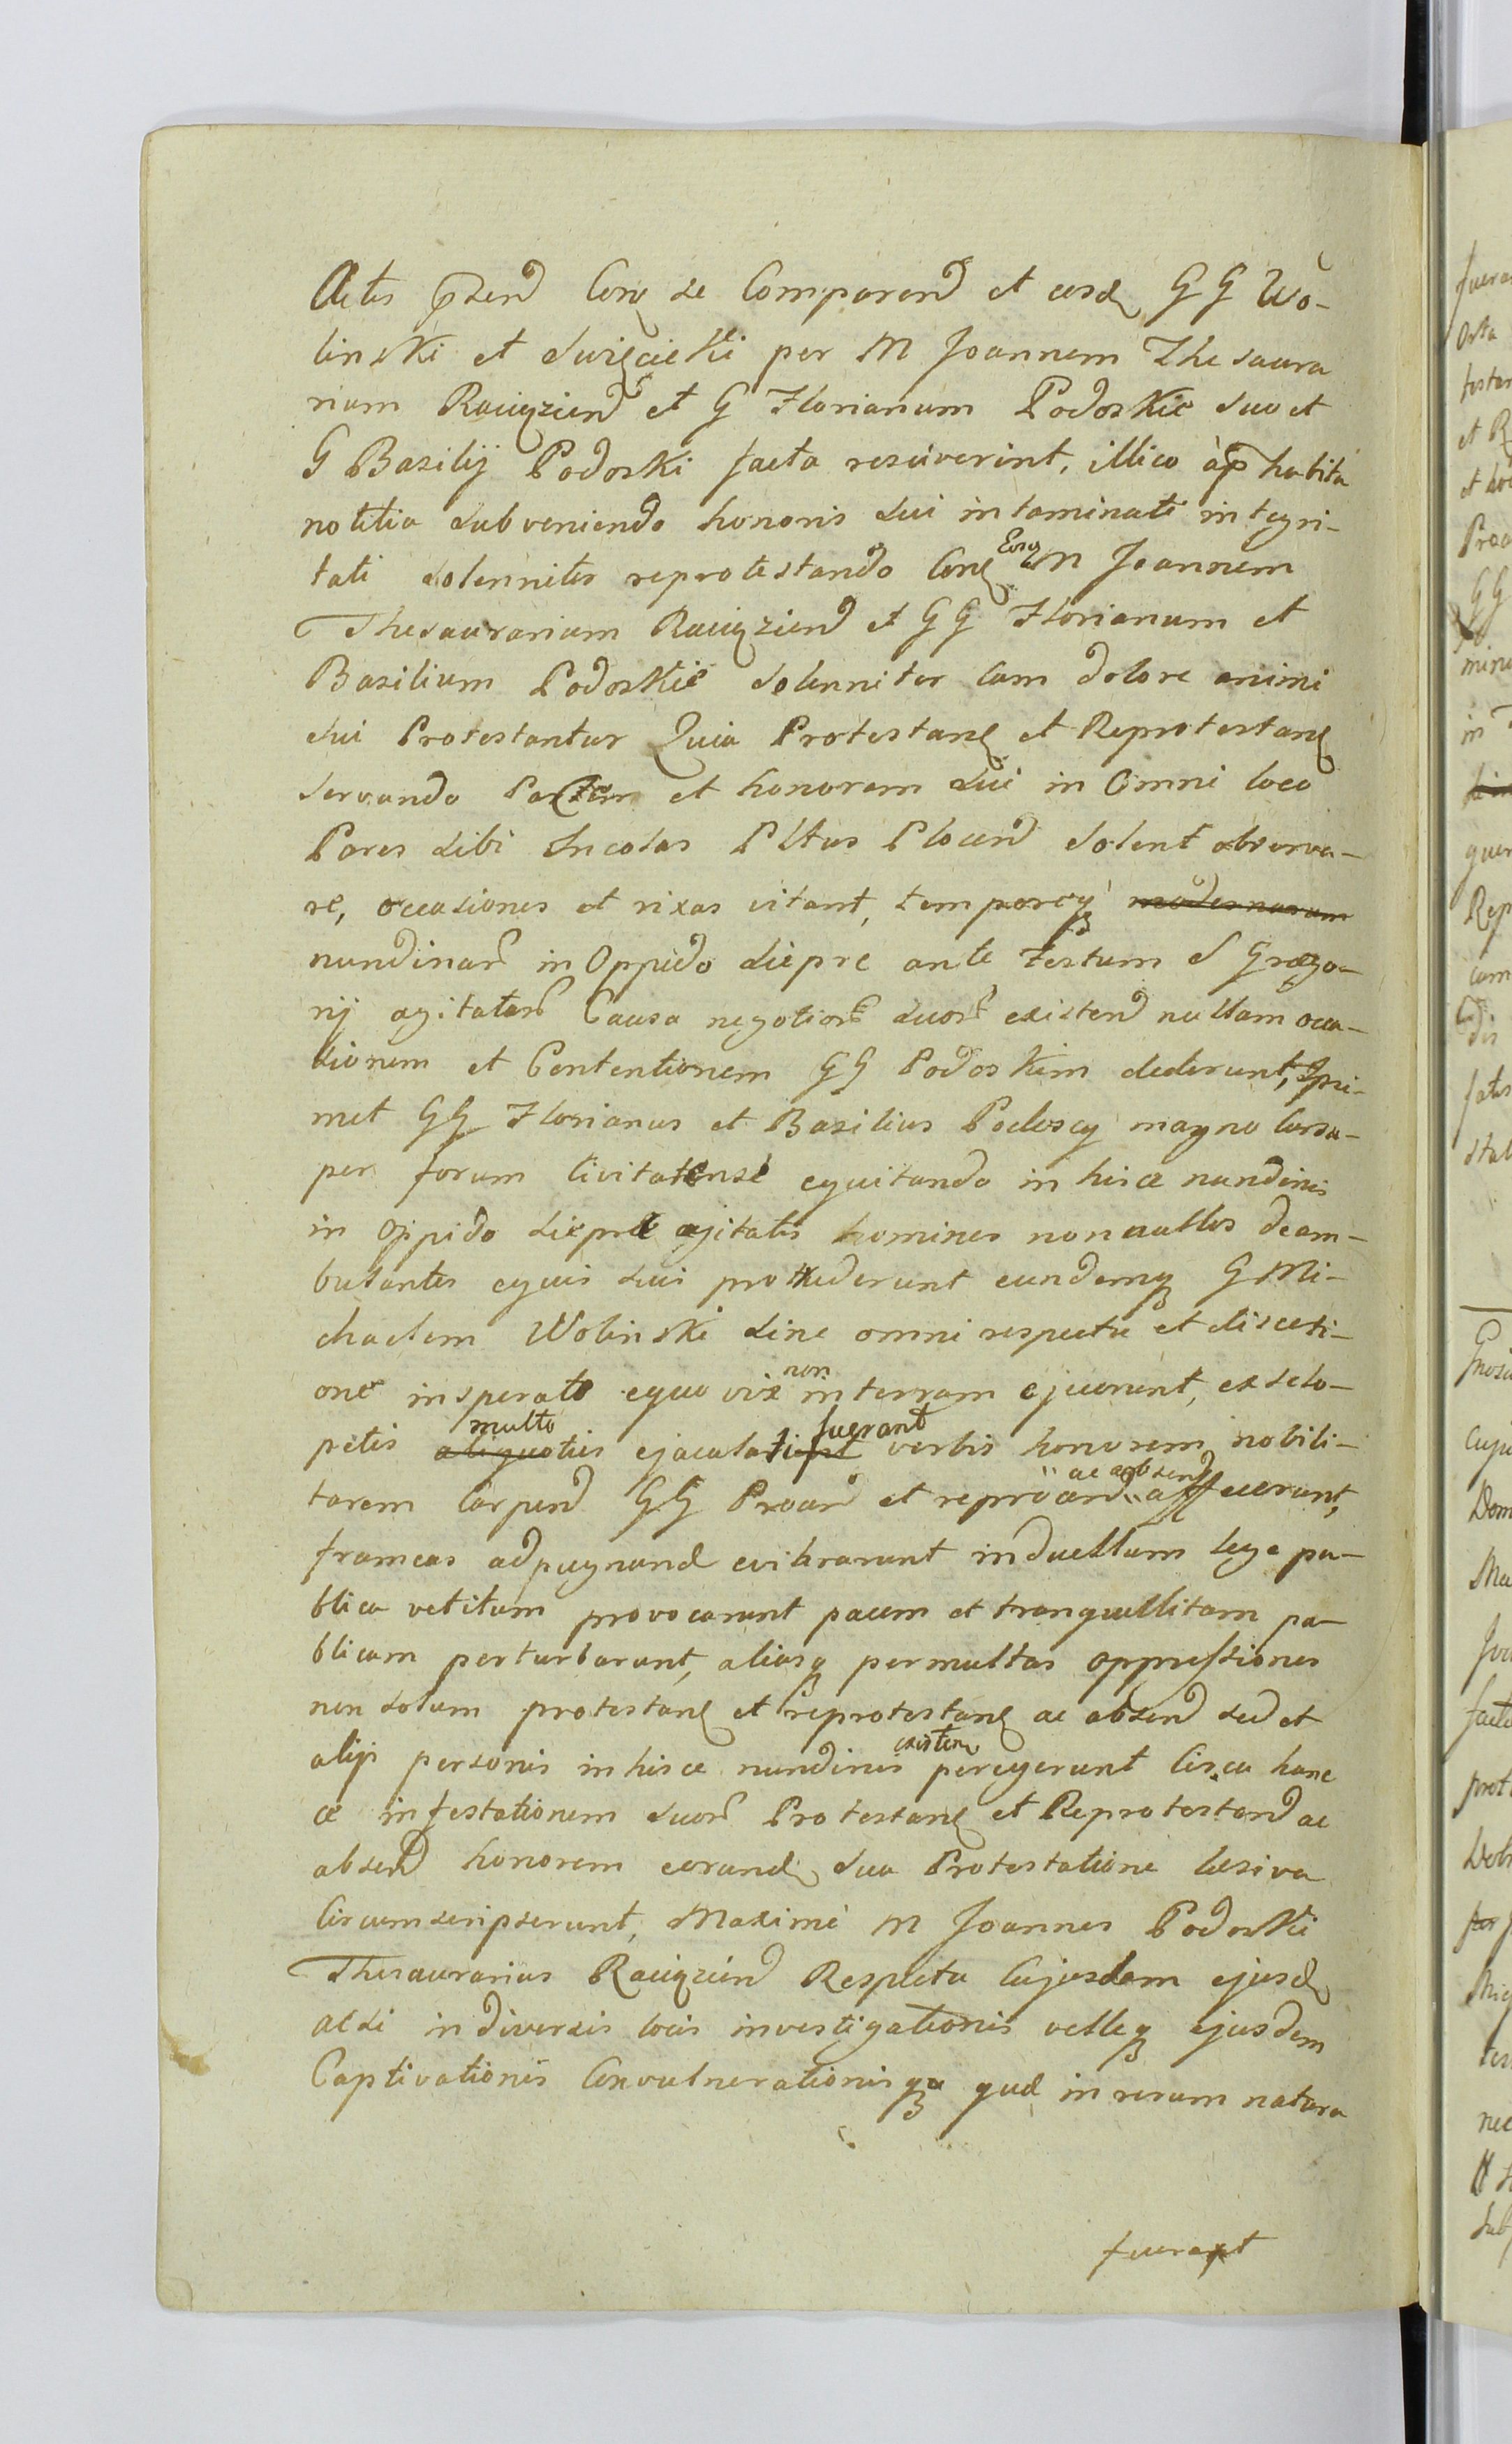 Actis pñsend Cong se Comparend et eosd GG Wo-
linski et Swięcicki per M Joannem Thesaura
rium Raciąziend et G Florianum Podoskie suo et
G Basilÿ Podoski facta resciverint, illico àp habita
notitia subveniendo honoris sui intaminati integri-
tati solenniter reprotestando Cong Eosq M Joannem
Thesaurarium Raciąziend et GG Florianum et
Basilium Podoskie solenniter cum dolore animi
sui Protestantur Quia Protestang et Reprotestang
servando et honorem sui in Omni loco
Pares sibi Incolas Pltus Plocend solent observa-
re, occasiones et rixas vitant, temporeq modernarum
nundinar in Oppido Siepre ante Festum S Grego-
rij agitatar Causa negotior suor existend nullam occa-
sionem et Contentionem GG Podoskim dederunt, Ipsi-
met GG Florianus et Basilius Podoscy magno Cursu
per forum Civitatense equitando in hisce nundinis
in Oppido Siepre agitatis homines nonnullos deam-
bulantes equis sui protruderunt eundemq GMi-
chaelem Wolinski sine omni respectu et discreti-
one insperato equo vix non in terram ejecerunt, ex sclo-
petis aliquoties multo ejaculati fuerant verbis honorem nobili-
tarem Carpend GG Proand et reproand ac absend affecerunt,
frameas ad pugnand evibrarunt in duellum lege pu-
blica vetitum provocarunt pacem et tranquillitam pu-
blicam perturbarunt, aliasq permultas oppressiones
non solum protestang et reprotestang ac absend sed et
alijs personis in hisce nundinis existen peregerunt Circa hanc
ce infestationem suor Protestang et Reprotestand ac
absend honorem eorund sua Protestatione lesiva
Circumscripserunt, Maximè M Joannes Podoski
Thesaurarius Raciąziend Respectu Cujusdam ejusd
acsi in diversis locis investigationis velleq ejusdem
Captivationis Convulnerationisq qud in rerum natura
fuerant